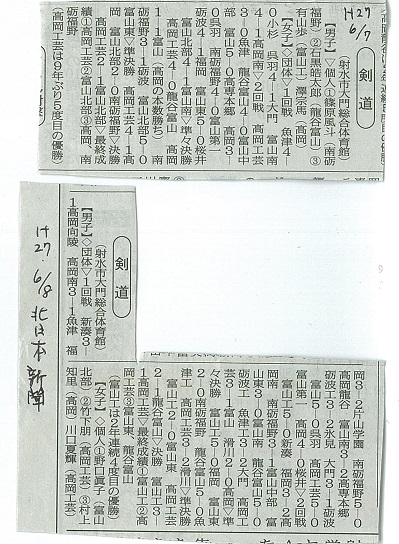 H27
6/7
剣道
（射水市大門総合体育館）
【男子】◇個人①篠原風斗（南砺
福野）②石黒皓太郎（龍谷富山）③
有山歩（富山工）澤宗馬（高岡）
【女子】◇団体▽1回戦 魚津4―
0小杉 呉羽4―1大門 富山南
4―1高岡南▽2回戦 高岡工芸
3―0魚津 龍谷富山4―0富山中
部 富山5―0高専本郷 高岡3―
0呉羽 南砺福野4―0富山第一
砺波4―1福岡 富山東5―0桜井
富山北部4―1富山南▽準々決勝
高岡工芸4―0龍谷富山 高岡
1―1富山（高岡の本数勝ち） 南
砺福野3―1砺波 富山北部5―0
富山東▽準決勝 高岡工芸4―1高
岡 富山北部2―0南砺福野▽決勝
高岡工芸2―1富山北部▽最終成
績①高岡工芸②富山北部③高岡、南
砺福野
（高岡工芸は9年ぶり5度目の優勝）
剣道
（射水市大門総合体育館）
【男子】◇団体▽1回戦 新湊3―
1高岡向陵 高岡南3―1魚津 福
岡3―2片山学園 南砺福野5―0
高岡龍谷 富山南3―2高専本郷
砺波工3―2氷見 大門3―1呉羽
富山工5―0呉羽 高岡工芸5―0
富山第一 高岡4―0桜井▽2回戦
富山工5―0新湊 福岡3―2高
岡南 南砺福野3―1富山中部 富
山東3―0富山南 龍谷富山5―0
砺波工 魚津工3―2大門 高岡工
芸3―1富山 滑川2―0高岡▽準
々決勝 富山工5―0福岡 富山東
2―0南砺福野 龍谷富山5―0魚
津工 高岡工芸3―2滑川▽準決勝
富山工2―0富山東 高岡工芸
2―1龍谷富山▽決勝 富山工3―
1高岡工芸▽最終成績①富山工②高
岡工芸③富山東、龍谷富山
（富山工は2年連続4度目の優勝）
【女子】◇個人①野口眞子（富山
北部）②竹下朋（高岡工芸）③村上
知里（高岡）川口夏輝（高岡工芸）
H27. 6/8 北日本新聞